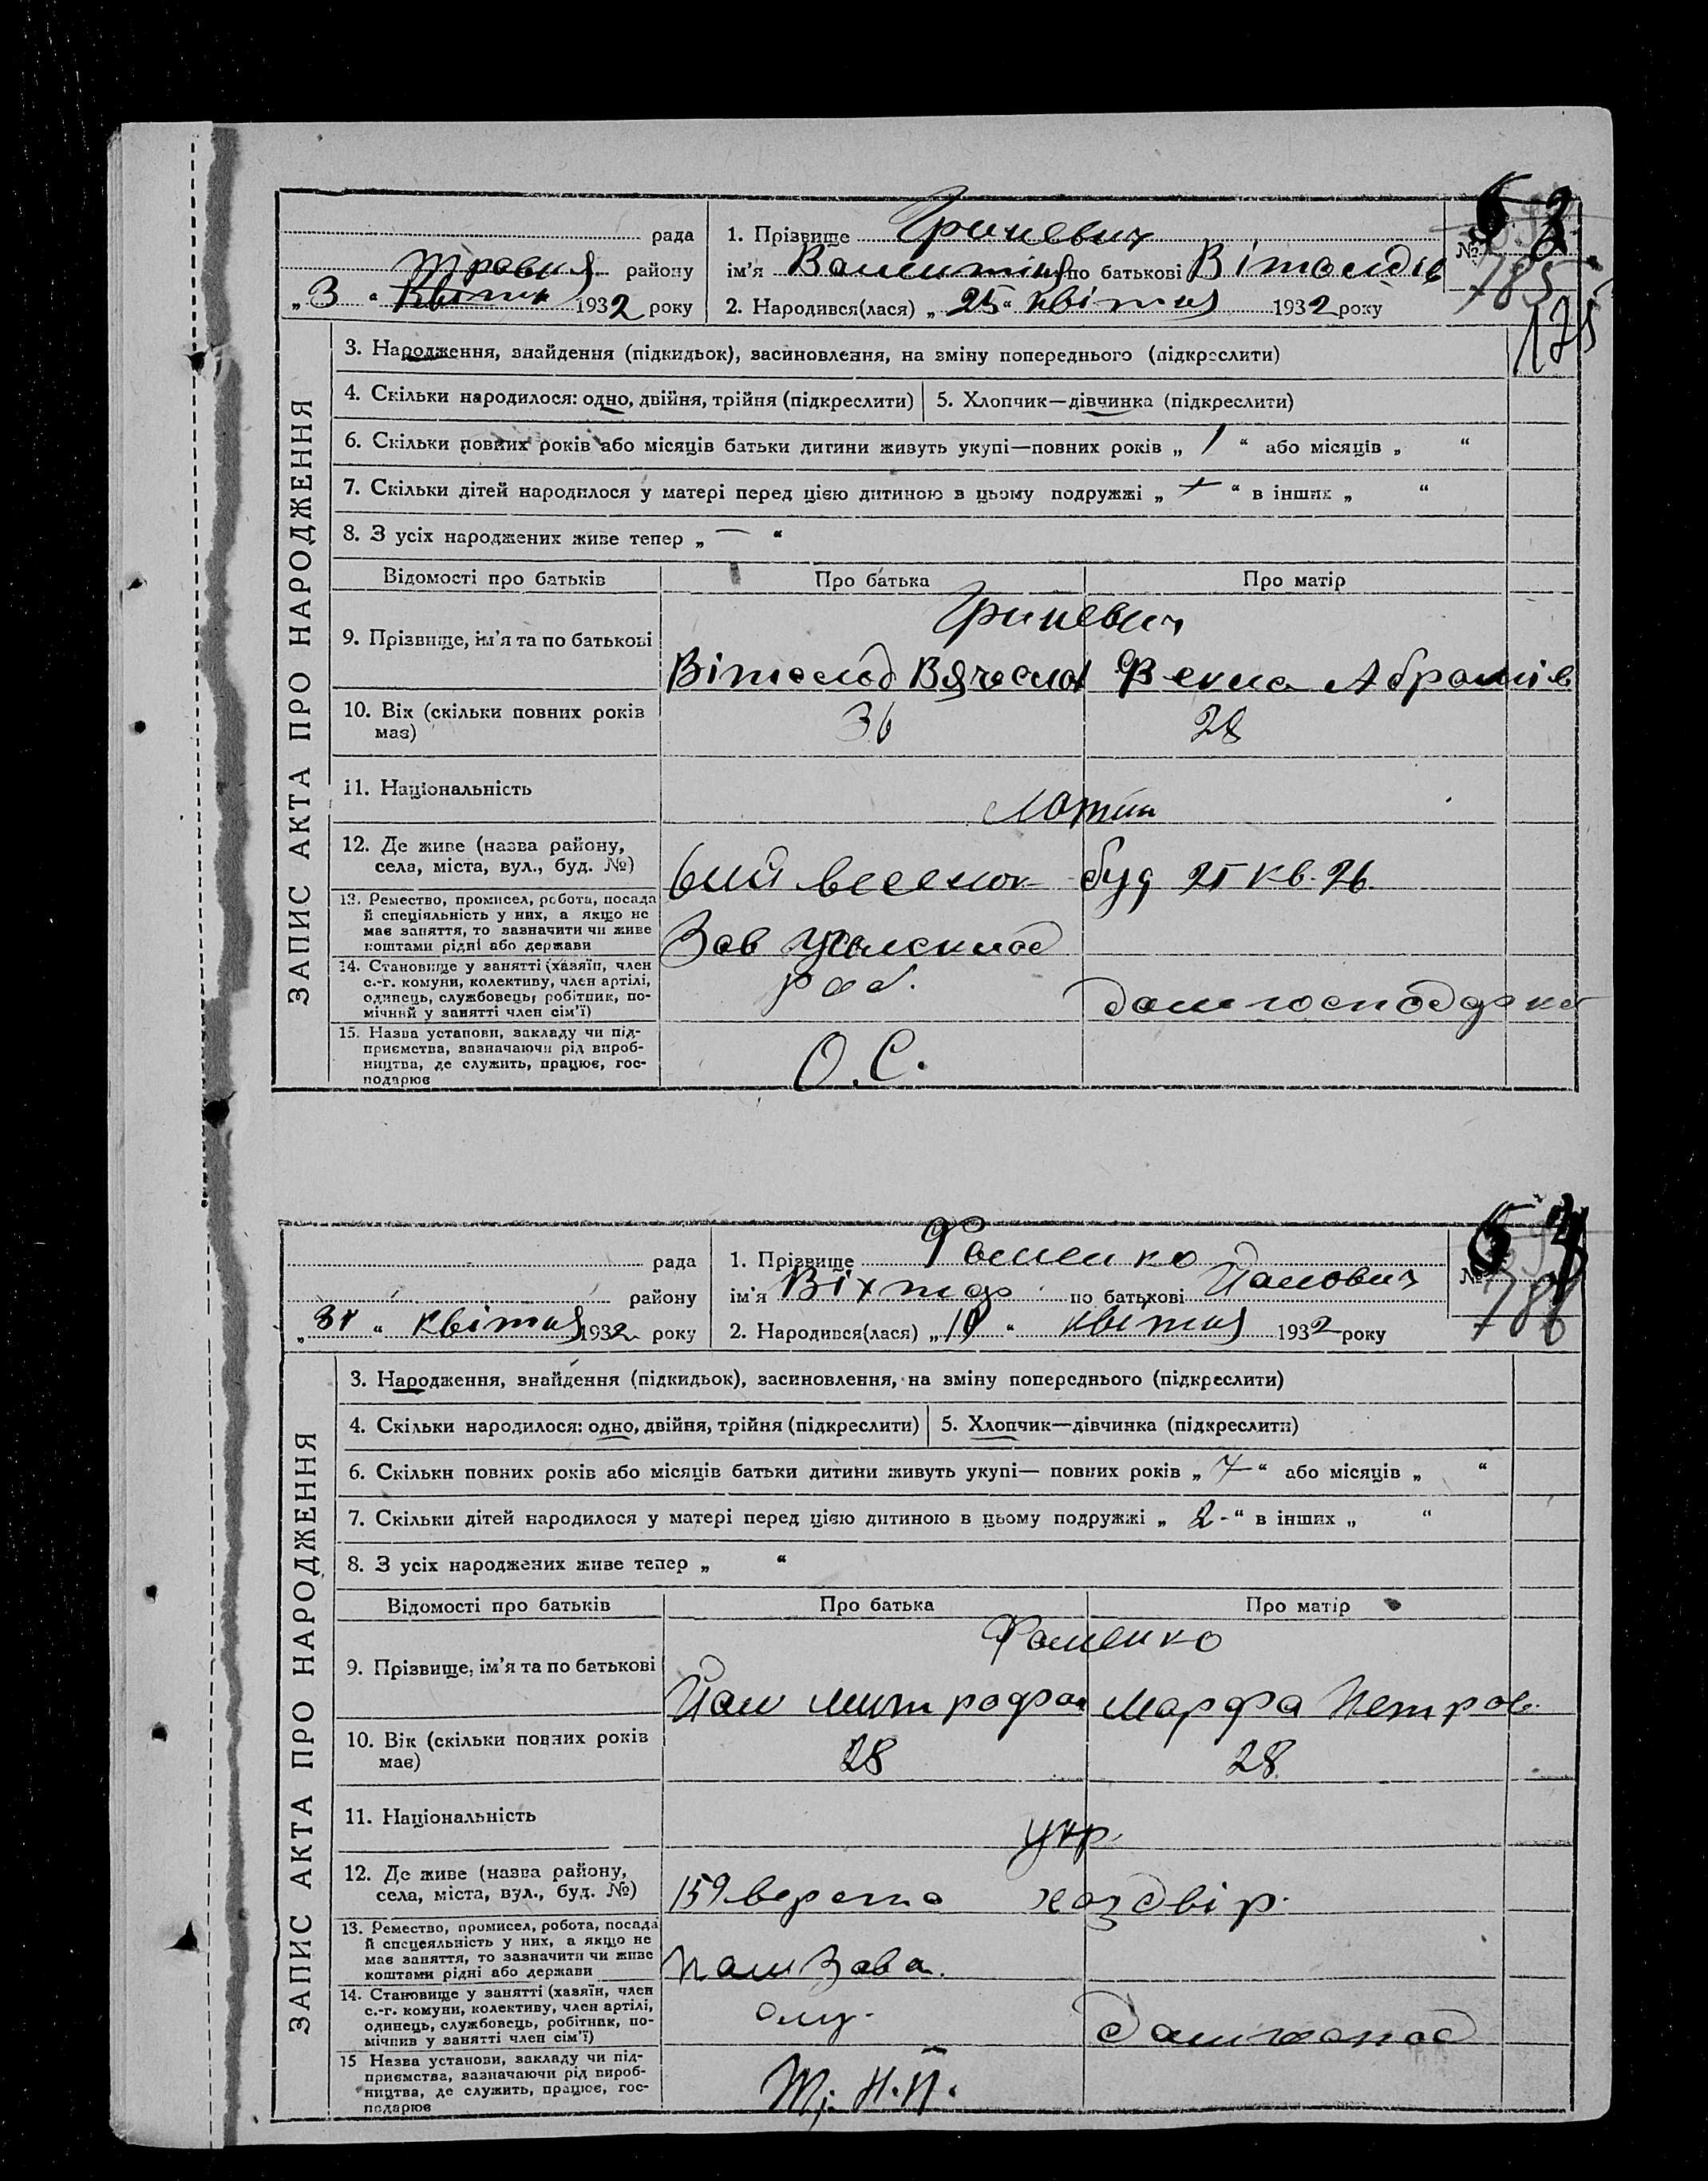 рада 1. Прізвище Гриневич №
Травня району ім'я Валентина по батькові Віталдів 785
„3“ Квітня 1932 року 2. Народився(лася) „25“ квітня 1932 року
175
ЗАПИС АКТА ПРО НАРОДЖЕННЯ
3. Народження, знайдення (підкидьок), засиновлення, на зміну попереднього (підкреслити)
4. Скільки народилося: одно, двійня, трійня (підкреслити) 5. Хлопчик—дівчинка (підкреслити)
6. Скільки повних років або місяців батьки дитини живуть укупі—повних років „ 1 “ або місяців „ “
7. Скільки дітей народилося у матері перед цією дитиною в цьому подружжі „ “ в інших „ “
8. З усіх народжених живе тепер „ — “
Відомості про батьків Про батька Про матір
Гриневич
9. Прізвище, ім'я та по батькові
Віталод Вячеслав Фекла Абрамів
10. Вік (скільки повних років 36 28
має)
11. Національність
12. Де живе (назва району,
села, міста, вул., буд. №) буд 25 кв. 26
13. Ремество, промисел, робота, посада
й спеціяльність у них, а якщо не
має заняття, то зазначити чи живе Зав
коштами рідні або держави
14. Становище у занятті (хазяїн, член
с.-г. комуни, колективу, член артілі, роб.
одинець, службовець, робітник, по-
мічний у занятті член сім'ї) домгосподарка
15. Назва установи, закладу чи під-
приємства, зазначаючи рід вироб-
ництва, де служить, працює, гос- О. С.
подарює
рада 1. Прізвище Фоменко №
району ім'я Віхтор по батькові Йанович 786
„ “ квітня 1932 року 2. Народився(лася) „ “ квітня 1932 року
ЗАПИС АКТА ПРО НАРОДЖЕННЯ
3. Народження, знайдення (підкидьок), засиновлення, на зміну попереднього (підкреслити)
4. Скільки народилося: одно, двійня, трійня (підкреслити) 5. Хлопчик—дівчинка (підкреслити)
6. Скільки повних років або місяців батьки дитини живуть укупі— повних років „ 7 “ або місяців „ “
7. Скільки дітей народилося у матері перед цією дитиною в цьому подружжі „ 2 - “ в інших „ “
8. З усіх народжених живе тепер „ “
Відомості про батьків Про батька Про матір
Фоменко
9. Прізвище, ім'я та по батькові
Йан Митрофан Марфа Петров.
10. Вік (скільки повних років 28 28
має)
11. Національність укр.
12. Де живе (назва району,
села, міста, вул., буд. №) 159 верста хоздвір.
13. Ремество, промисел, робота, посада
й спецеяльність у них, а якщо не
має заняття, то зазначити чи живе пом Зава.
коштами рідні або держави
14. Становище у занятті (хазяїн, член
с.-г. комуни, колективу, член артілі, слу.
одинець, службовець, робітник, по-
мічнив у занятті член сім'ї) домгоспод
15 Назва установи, закладу чи під-
приємства, вазначаючи рід вироб-
ництва, де служить, працює, гос-
подарюв